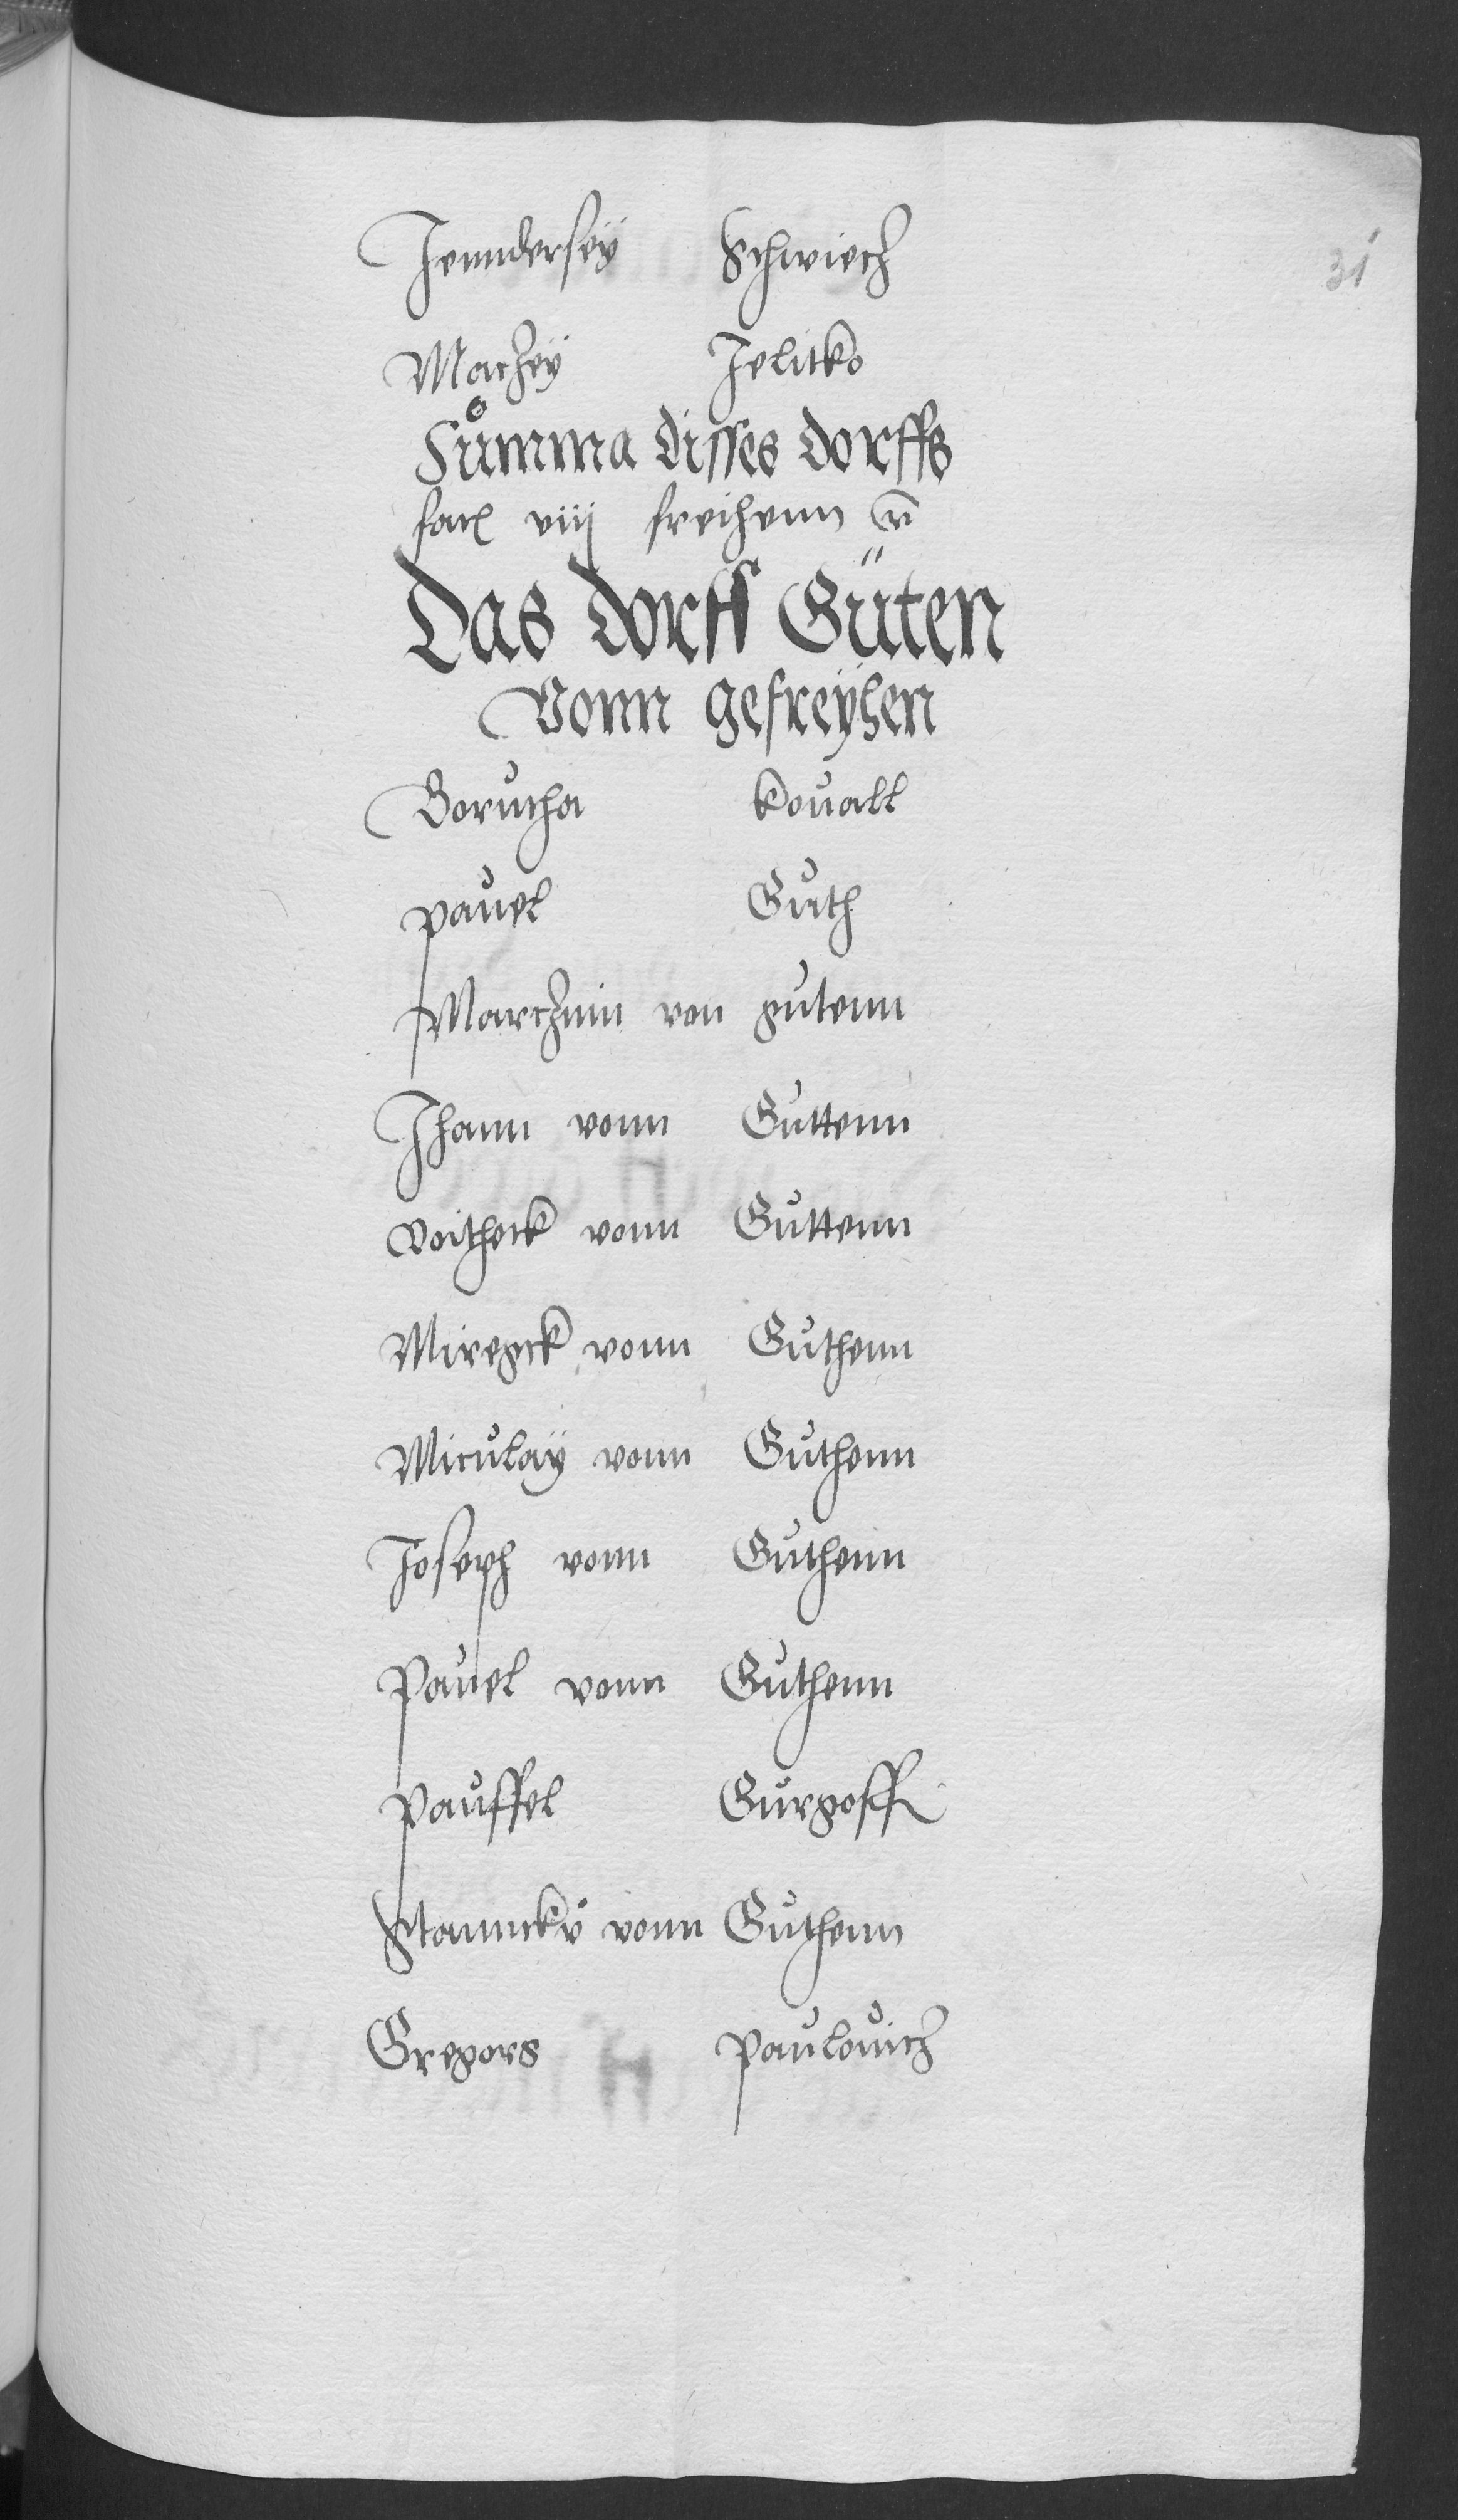 31
Jenndersey Schwiech
Machey Jelitko
Sůmma disses dorffs
facj viij freihenn
Das dorff Güten
Vonn gefreÿhen
Borutha kovall
pauel Guth
Marchmin von gutenn
Jhann vonn Guttenn
Voitheck vonn Guttenn
Miregck vonn Guthenn
Miculaÿ vonn Guthenn
Joseph vonn Guthenn
Pauel vonn Guthenn
Pauffel Gurgoff
Stannckv vonn Guthenn
Gregors Paulouich